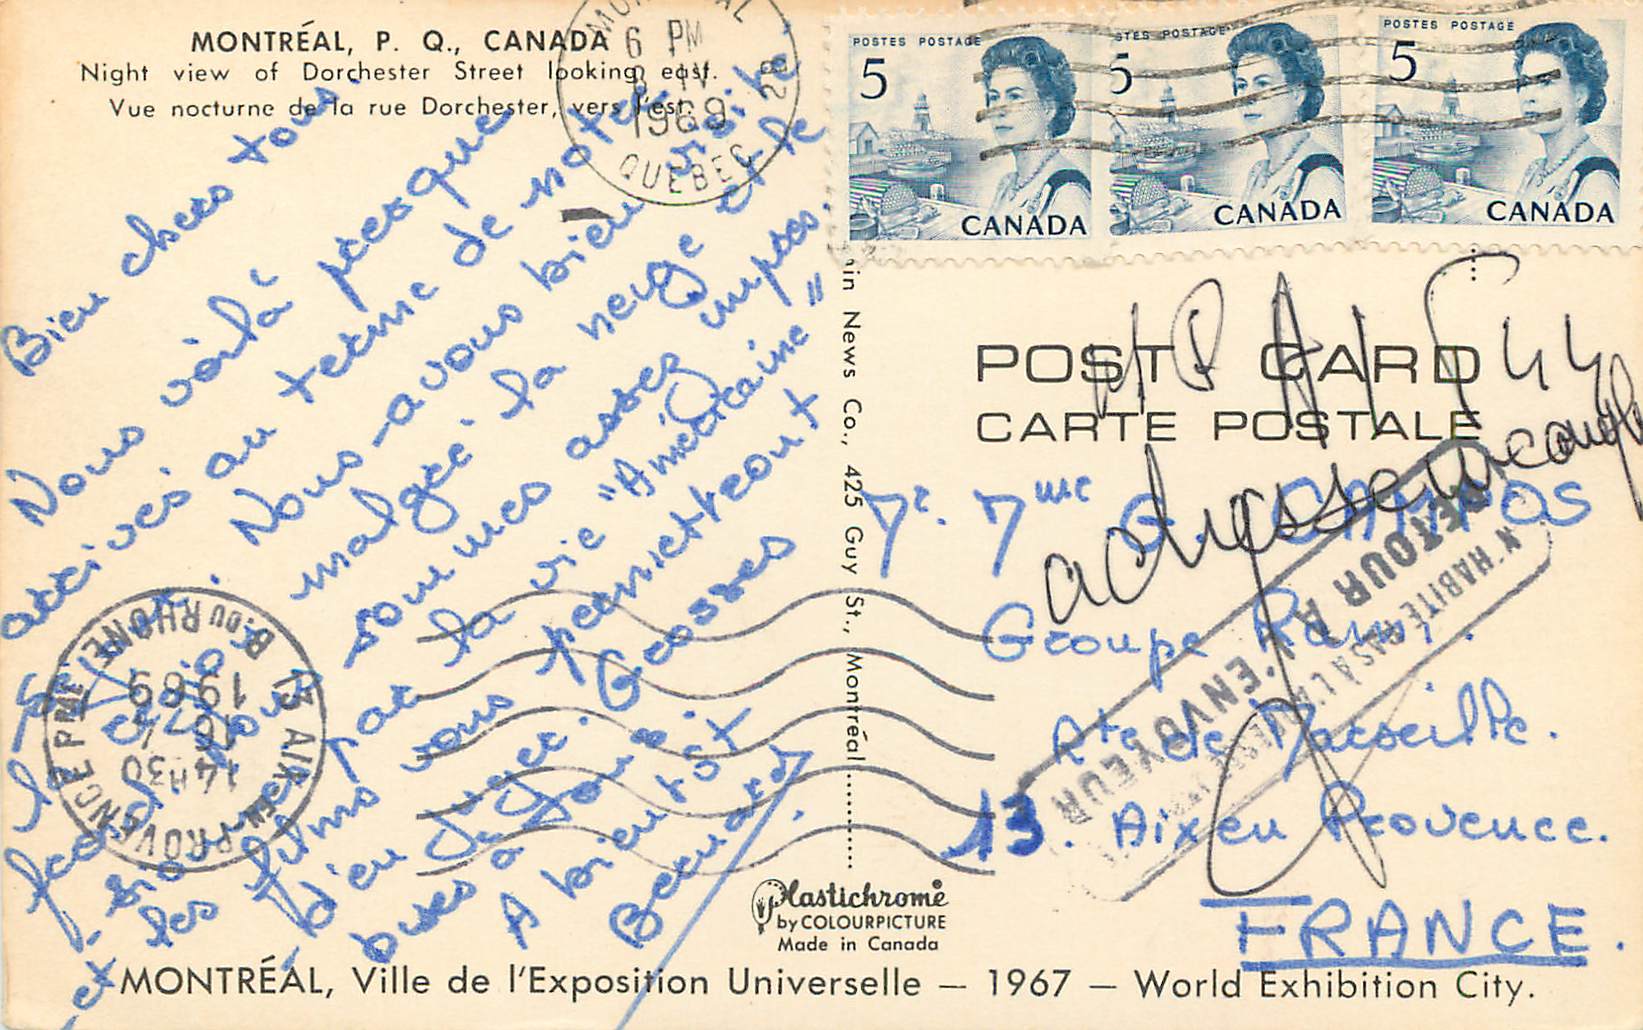 MONTRÉAL, P. Q., CANADA
Night view of Dorchester Street looking east.
Vue nocturne de la rue Dorchester, vers l'est.
MONTREAL
6 PM
8 IV
1969
QUEBEC
28
POSTES POSTAGE
5
CANADA
POSTES POSTAGE
5
CANADA
POSTES POSTAGE
5
CANADA
Bien chers tous.
Nous voilà presque
arrivés au terme de notre
Nous-avous bien visité
malgré la neige et le
froid. Nous sommes assez impres-
sionnés par la vie "Américaine"
et les films vous permettront
d'en juger. Grosses
bises à tous.
A bientôt
Bernard
in News Co., 425 Guy St., Montréal
POST CARD
CARTE POSTALE
adresse incomplète
Mr. Mme G. CAMPOS
Groupe
Rte de Marseille.
13. Aix en Provence.
FRANCE.
RETOUR A L'ENVOYEUR
N'HABITE PAS A L'ADRESSE
13 AIX EN PROVENCE PPAL
B. DU RHONE
14H30
16-4
1969
Plastichrome
by COLOURPICTURE
Made in Canada
MONTRÉAL, Ville de l'Exposition Universelle — 1967 — World Exhibition City.